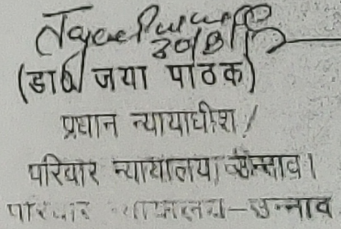 (डा० जया पाठक)
प्रधान न्यायाधीश/
परिवार न्यायालय, उन्नाव।
परिवार न्यायालय-उन्नाव